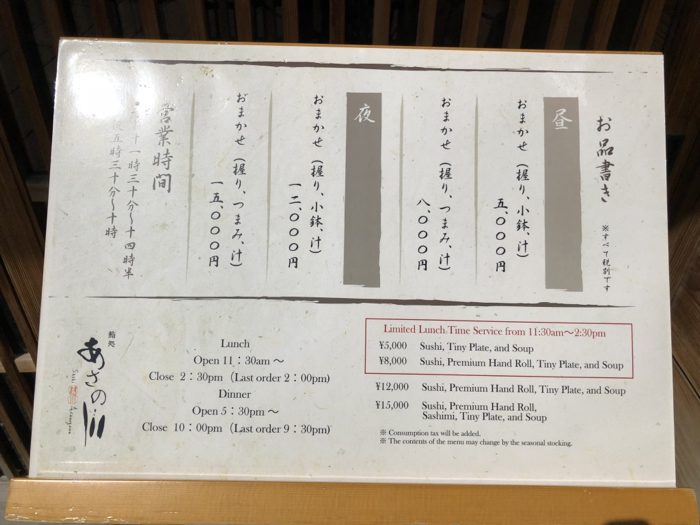 お品書き
※すべて税別です
昼
おまかせ（握り、小鉢、汁）
五、〇〇〇円
おまかせ（握り、つまみ、汁）
八、〇〇〇円
夜
おまかせ（握り、小鉢、汁）
一二、〇〇〇円
おまかせ（握り、つまみ、汁）
一五、〇〇〇円
営業時間
十一時三十分〜十四時半
五時三十分〜十時
鮨処
あさの川
Sushi Asanogawa
Lunch
Open 11：30am〜
Close 2：30pm（Last order 2：00pm）
Dinner
Open 5：30pm〜
Close 10：00pm（Last order 9：30pm）
Limited Lunch Time Service from 11:30am〜2:30pm
¥5,000 Sushi, Tiny Plate, and Soup
¥8,000 Sushi, Premium Hand Roll, Tiny Plate, and Soup
¥12,000 Sushi, Premium Hand Roll, Tiny Plate, and Soup
¥15,000 Sushi, Premium Hand Roll,
Sashimi, Tiny Plate, and Soup
※ Consumption tax will be added.
※ The contents of the menu may change by the seasonal stocking.